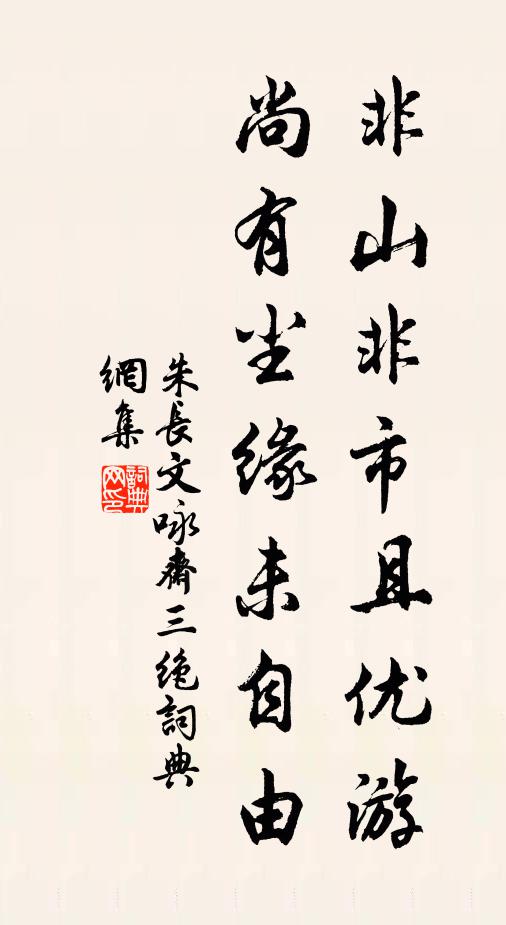 非山非市且优游
尚有尘缘未自由
朱長文咏齋三绝詞典
網集
詞典網印